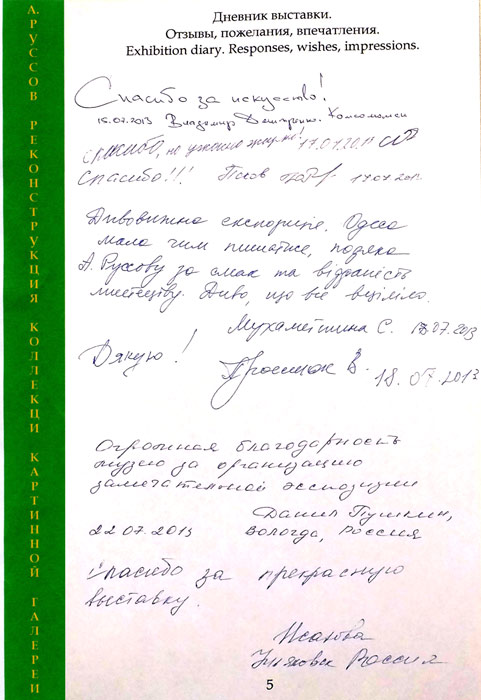 А.РУССОВ РЕКОНСТРУКЦИЯ КОЛЛЕКЦИ КАРТИННОЙ ГАЛЕРЕИ
Дневник выставки.
Отзывы, пожелания, впечатления.
Exhibition diary. Responses, wishes, impressions.
Спасибо за искусство!
15.07.2013 Владимир
17.07.201
Спасибо!!! 17.07.201
Дивовижна експозиція. Одеса
мала чим пишатися, подяка
А.Руссову за смак та відданість
мистецтву. Диво, що все вціліло.
Мухаметшина С. 18.07.2013
Дякую!
В. 18.07.2013
Огромная благодарность
музею за организацию
замечательной экспозиции
Данил Пушкин,
22.07.2013 Вологда, Россия
Спасибо за прекрасную
выставку.
Исакова
Россия
5